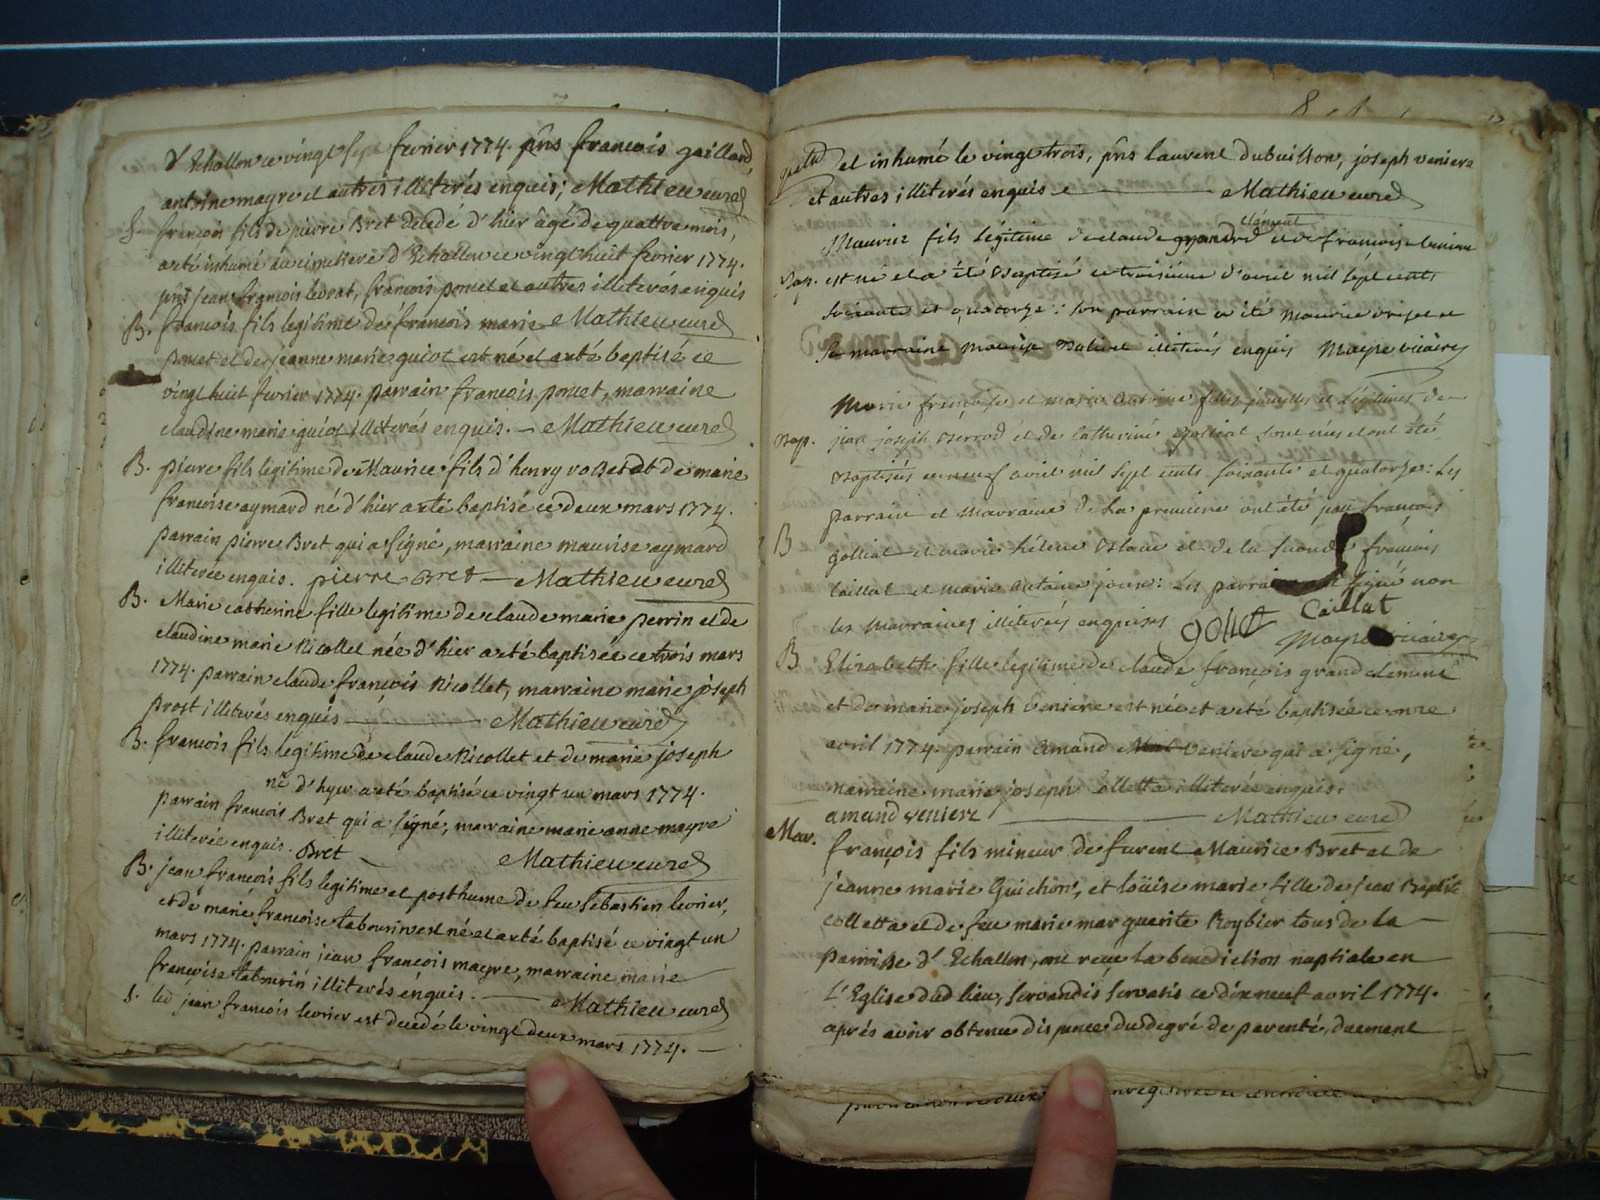 d'Echallon ce vingt sept fevrier 1774. pñs francois gaillard,
antoine mayre et autres illiterés enquis; Mathieu curé
S. francois fils de pierre Bret decedé d'hier âgé de quattre mois,
a eté inhumé au cimetiere d'Echallon ce vingt huit fevrier 1774.
pñs jean francois ledrat, francois poncet et autres illiterés enquis
B. francois fils legitime de francois marie Mathieu curé
poncet et de jeanne marie guiot est né et a eté baptisé ce
vingt huit fevrier 1774. parrain francois poncet, marraine
claudine marie guiot illiterés enquis. — Mathieu curé
B. pierre fils legitime de Maurice fils d'henry et de marie
francoise aymard né d'hier a eté baptisé ce deux mars 1774.
parrain pierre Bret qui a signé, marraine maurise aymard
illiterée enquise. pierre Bret — Mathieu curé
B. Marie catherine fille legitime de claude marie perrin et de
claudine marie Nicollet née d'hier a eté baptisée ce trois mars
1774. parrain claude francois Nicollet, marraine marie joseph
prost illiterés enquis — Mathieu curé
B. francois fils legitime de claude Nicollet et de marie joseph
né d'hyer a eté baptisé ce vingt un mars 1774.
parrain francois Bret qui a signé, marraine marie anne mayre
illiterée enquise. Bret — Mathieu curé
B. jean francois fils legitime et posthume de feu sébastien levrier,
et de marie francoise tabourin est né et a eté baptisé ce vingt un
mars 1774. parrain jean francois mayre, marraine marie
francoise tabourin illiterés enquis. — Mathieu curé
S. led jean francois levrier est decedé le vingt deux mars 1774. —
et inhumé le vingt trois, pñs laurent dubuisson, joseph veniere
et autres illiterés enquis — Mathieu curé
clement
Maurice fils légitime de claude grand et de francoise
Bap. est né et a été Baptisé ce troisième d'avril mil sept cents
soixante et quatorze: son parrain a été Maurice
Sa marraine illiterés enquis Mayre vicaire
Marie françoise et marie antoine filles jumelles et légitimes de
Bap. jean joseph et de Catherine golliat sont nées et ont été
Baptisées ce neuf avril mil sept cents soixante et quatorze: Les
parrain et marraine de la premiere ont été françois
B golliat et marie hélene et de la seconde françois
Caillat et marie antoine: Les parrains ont signé non
les marraines illiterées enquises golliat Caillat
Mayre vicaire
B Elizabeth fille legitime de claude françois grand clement
et de marie joseph veniere est née et a eté baptisée ce onze
avril 1774. parrain amand veniere qui a signé,
marraine marie joseph colletta illiterée enquise.
amand veniere — Mathieu curé
Mar. françois fils mineur de furent Maurice Bret et de
jeanne marie Guichon, et loüise marie fille de jean Baptiste
colletta et de feu marie marguerite Roybier tous de la
paroisse d'Echallon, ont reçu la benediction nuptiale en
L'Eglise dud lieu, servandis servatis ce dix neuf avril 1774.
aprés avoir obtenu dispence du degré de parenté, duement